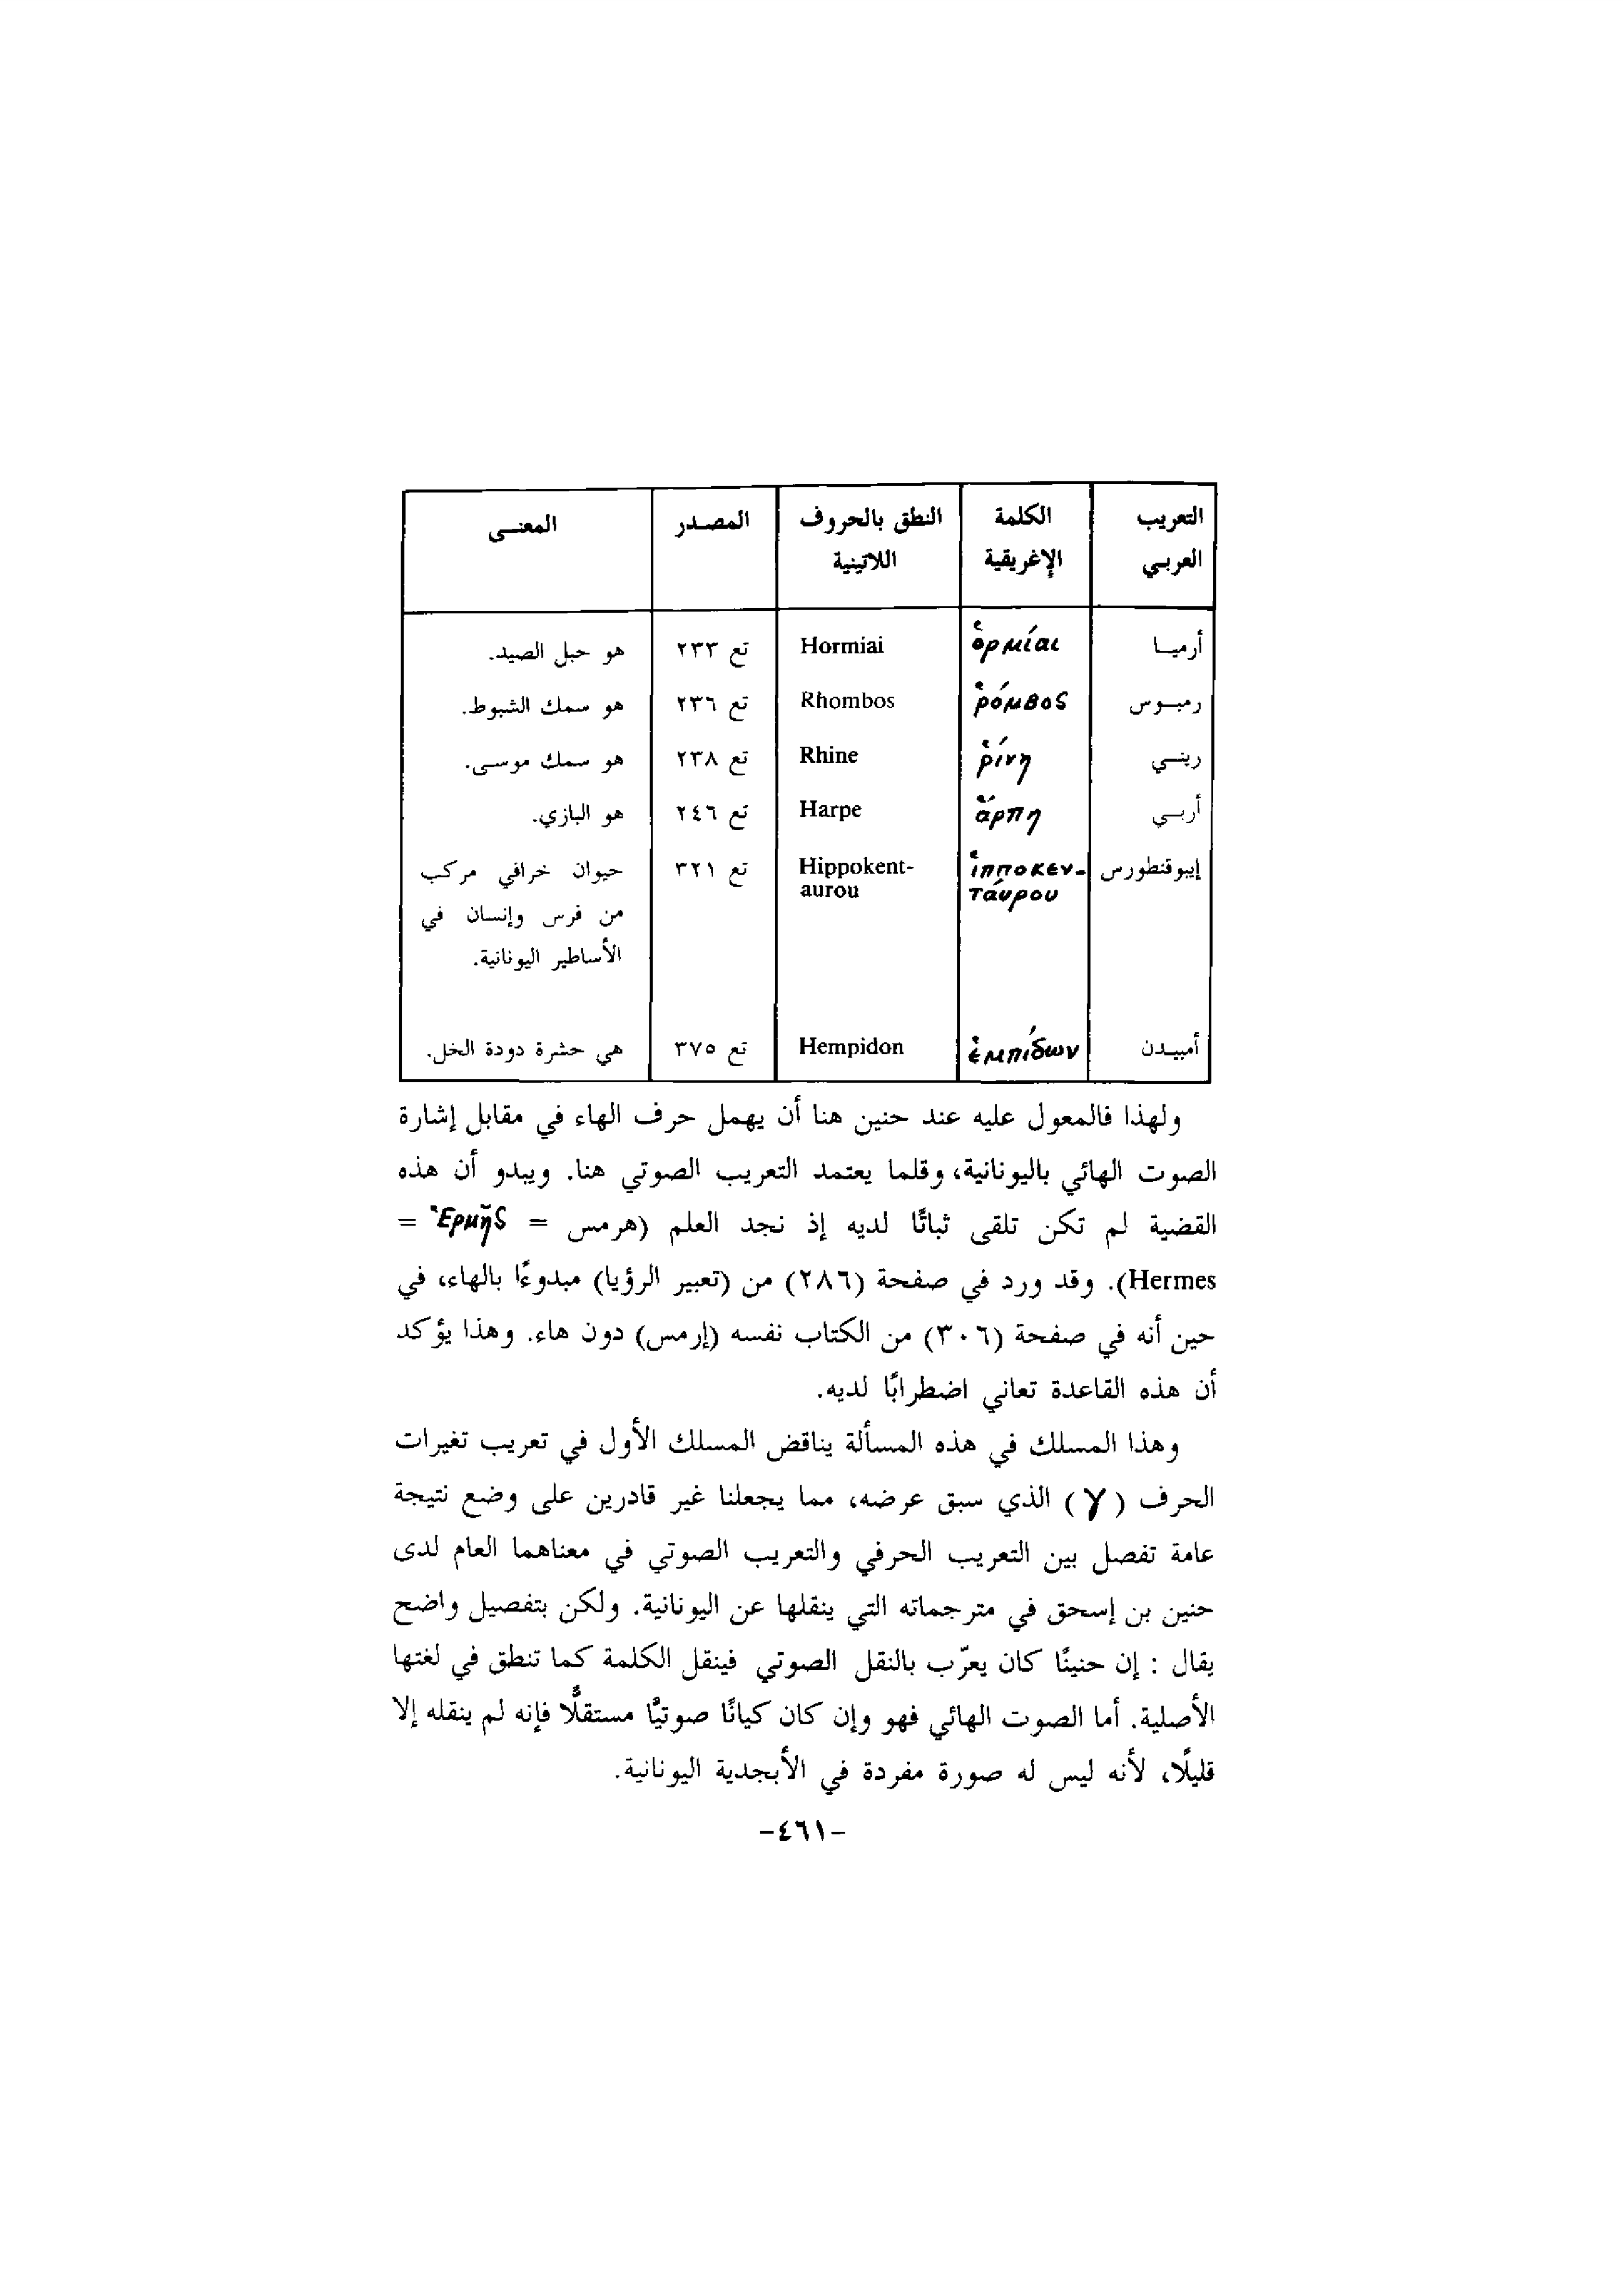 التعريب العربي | الكلمة الإغريقية | النطق بالحروف اللاتينية | المصدر | المعنى
أرميا | ὁρμίαι | Hormiai | تع ٢٣٣ | هو حبل الصيد.
رمبوس | ῥόμβος | Rhombos | تع ٢٣٦ | هو سمك الشبوط.
ريني | ῥίνη | Rhine | تع ٢٣٨ | هو سمك موسى.
أربي | ἅρπη | Harpe | تع ٢٤٦ | هو البازي.
إيبوقنطورس | ἱπποκεν- | Hippokent- | تع ٣٢١ | حيوان خرافي مركب
ταύρου | aurou | من فرس وإنسان في
الأساطير اليونانية.
أمبيدن | ἑμπίδων | Hempidon | تع ٣٧٥ | هي حشرة دودة الخل.
ولهذا فالمعول عليه عند حنين هنا أن يهمل حرف الهاء في مقابل إشارة
الصوت الهائي باليونانية، وقلما يعتمد التعريب الصوتي هنا. ويبدو أن هذه
القضية لم تكن تلقى ثباتًا لديه إذ نجد العلم (هرمس = Ἑρμῆς =
Hermes). وقد ورد في صفحة (٢٨٦) من (تعبير الرؤيا) مبدوءًا بالهاء، في
حين أنه في صفحة (٣٠٦) من الكتاب نفسه (إرمس) دون هاء. وهذا يؤكد
أن هذه القاعدة تعاني اضطرابًا لديه.
وهذا المسلك في هذه المسألة يناقض المسلك الأول في تعريب تغيرات
الحرف (γ) الذي سبق عرضه، مما يجعلنا غير قادرين على وضع نتيجة
عامة تفصل بين التعريب الحرفي والتعريب الصوتي في معناهما العام لدى
حنين بن إسحق في مترجماته التي ينقلها عن اليونانية. ولكن بتفصيل واضح
يقال : إن حنينًا كان يعرّب بالنقل الصوتي فينقل الكلمة كما تنطق في لغتها
الأصلية. أما الصوت الهائي فهو وإن كان كيانًا صوتيًّا مستقلًّا فإنه لم ينقله إلا
قليلًا، لأنه ليس له صورة مفردة في الأبجدية اليونانية.
-٤٦١-